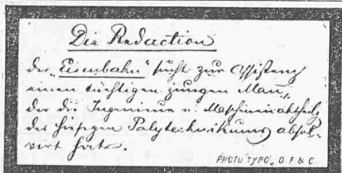 Die Redaction
der „Eisenbahn" sucht zur Assistenz
einen tüchtigen jungen Mann,
der die Ingenieur u. Maschinenabtheilg
des hiesigen Polytechnikums absol-
virt hat.
PHOTO "TYPO" O F & C.